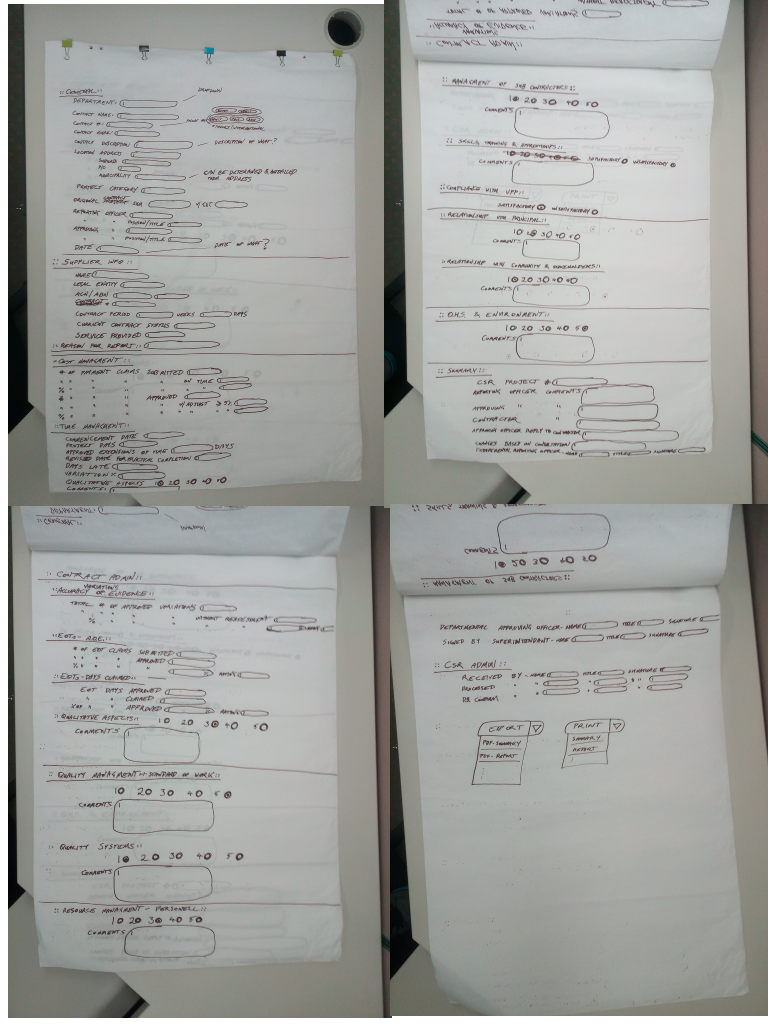 :: GENERAL::
DEPARTMENT:
CONTACT NAME:
CONTACT #:
CONTACT EMAIL:
CONTRACT DESCRIPTION
DESCRIPTION OF WHAT?
LOCATION ADDRESS
SUBURB
P/C
MUNICIPALITY
CAN BE DETERMINED & DETAILED
FROM ADDRESS
PROJECT CATEGORY
ORIGINAL CONTRACT SUM
REPORTING OFFICER
" " POSITION/TITLE
APPROVING "
" " POSITION/TITLE
DATE
DATE OF WHAT?
:: SUPPLIER INFO::
NAME
LEGAL ENTITY
ACN/ABN
CONTRACT PERIOD WEEKS DAYS
CURRENT CONTRACT STATUS
SERVICE PROVIDED
:: REASON FOR REPORT::
:: COST MANAGMENT ::
# OF PAYMENT CLAIMS SUBMITTED
" " " " ON TIME
% " " " " "
# " " " APPROVED
" " " " " W/ADJUST ≥ 5%
% " " " " " "
:: TIME MANAGMENT::
COMMENCEMENT DATE
PROJECT DAYS
APPROVED EXTENSIONS OF TIME DAYS
REVISED DATE FOR PRACTICAL COMPLETION
DAYS LATE
VARIATION %
QUALITATIVE ASPECTS 1 2 3 4 5
COMMENTS:
:: MANAGMENT OF SUB CONTRACTORS::
1 2 3 4 5
COMMENTS
:: SKILLS, TRAINING & APPRENTICES::
1 2 3 4 5 SATISFACTORY UNSATISFACTORY
COMMENTS
:: COMPLIANCE WITH VIPP::
SATISFACTORY UNSATISFACTORY
:: RELATIONSHIP WITH PRINCIPAL::
1 2 3 4 5
COMMENTS
:: RELATIONSHIP WITH COMMUNITY & STAKEHOLDERS::
1 2 3 4 5
COMMENTS
:: O.H.S. & ENVIRONMENT::
1 2 3 4 5
COMMENTS
:: SUMMARY::
CSR PROJECT #
REPORTING OFFICER COMMENTS
APPROVING " "
CONTRACTOR "
APPROVING OFFICER REPLY TO CONTRACTOR
CHANGES BASED ON CONSULTATION
DEPARTMENTAL APPROVING OFFICER - NAME TITLE SIGNATURE
:: CONTRACT ADMIN::
VARIATIONS
"ACCURACY OF EVIDENCE::
TOTAL # OF APPROVED VARIATIONS
" " " " " WITHOUT READJUSTMENT
% " " " " "
:: EOTs - A.O.E.::
# OF EOT CLAIMS SUBMITTED
" " " " APPROVED
% " " " "
:: EOTs - DAYS CLAIMED::
EOT DAYS APPROVED
" " CLAIMED
% OF " " APPROVED
:: QUALITATIVE ASPECTS:: 1 2 3 4 5
COMMENTS
:: QUALITY MANAGMENT - STANDARD OF WORK::
1 2 3 4 5
COMMENTS
:: QUALITY SYSTEMS::
1 2 3 4 5
COMMENTS
:: RESOURSE MANAGMENT - PERSONELL::
1 2 3 4 5
COMMENTS
DEPARTMENTAL APPROVING OFFICER - NAME TITLE SIGNATURE
SIGNED BY SUPERINTENDANT - NAME TITLE SIGNATURE
:: CSR ADMIN::
RECEIVED BY - NAME TITLE SIGNATURE
PROCESSED " " " "
EXPORT
PDF - SUMMARY
PDF - REPORT
PRINT
SUMMARY
REPORT